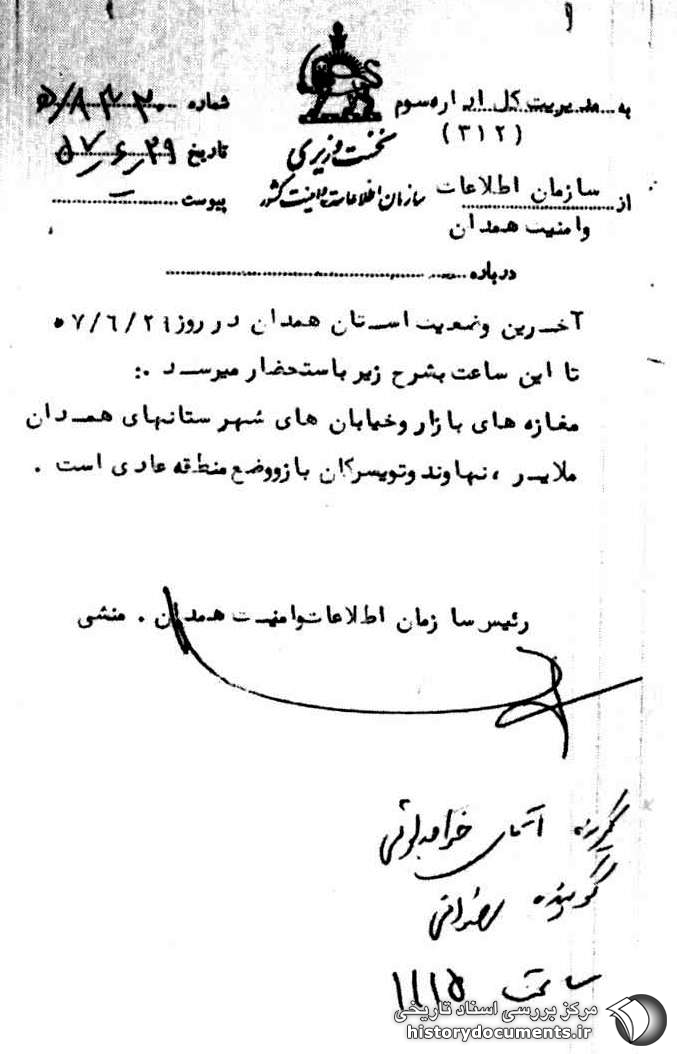 به مدیریت کل اداره سوم
(۳۱۲)
از سازمان اطلاعات
وامنیت همدان
نخست وزیری
سازمان اطلاعات و امنیت کشور
شماره ۵/۸۳۳۰
تاریخ ۵۷/۶/۲۹
پیوست
درباره
آخرین وضعیت استان همدان در روز ۵۷/۶/۲۹
تا این ساعت بشرح زیر باستحضار میرسد .:
مغازه های بازار وخیابان های شهرستانهای همدان
ملایر ، نهاوند وتویسرکان باز ووضع منطقه عادی است .
رئیس سازمان اطلاعات وامنیت همدان . منشی
گیرنده آقای
گوینده
ساعت ۱۱۱۵
مرکز بررسی اسناد تاریخی
historydocuments.ir